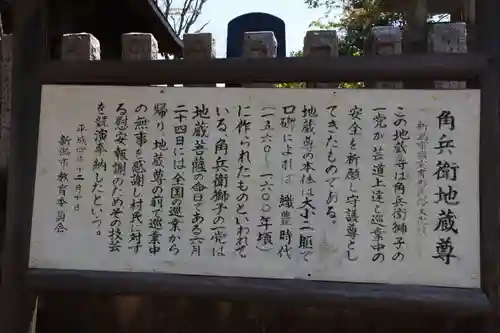 角兵衛地蔵尊
新潟市指定有形民俗文化財
この地蔵尊は角兵衛獅子の
一党が芸道上達と巡業中の
安全を祈願し守護尊とし
てきたものである。
地蔵尊の本体は大小二躯で
口碑によれば織豊時代
(一五六〇~一六〇〇年頃)
に作られたものといわれて
いる。角兵衛獅子の一党は
地蔵菩薩の命日である六月
二十四日には全国の巡業から
帰り、地蔵尊の前で巡業中
の無事を感謝し村民に対す
る慰安報謝のためその技芸
を競演奉納したという。
平成四年十二月十日
新潟市教育委員会